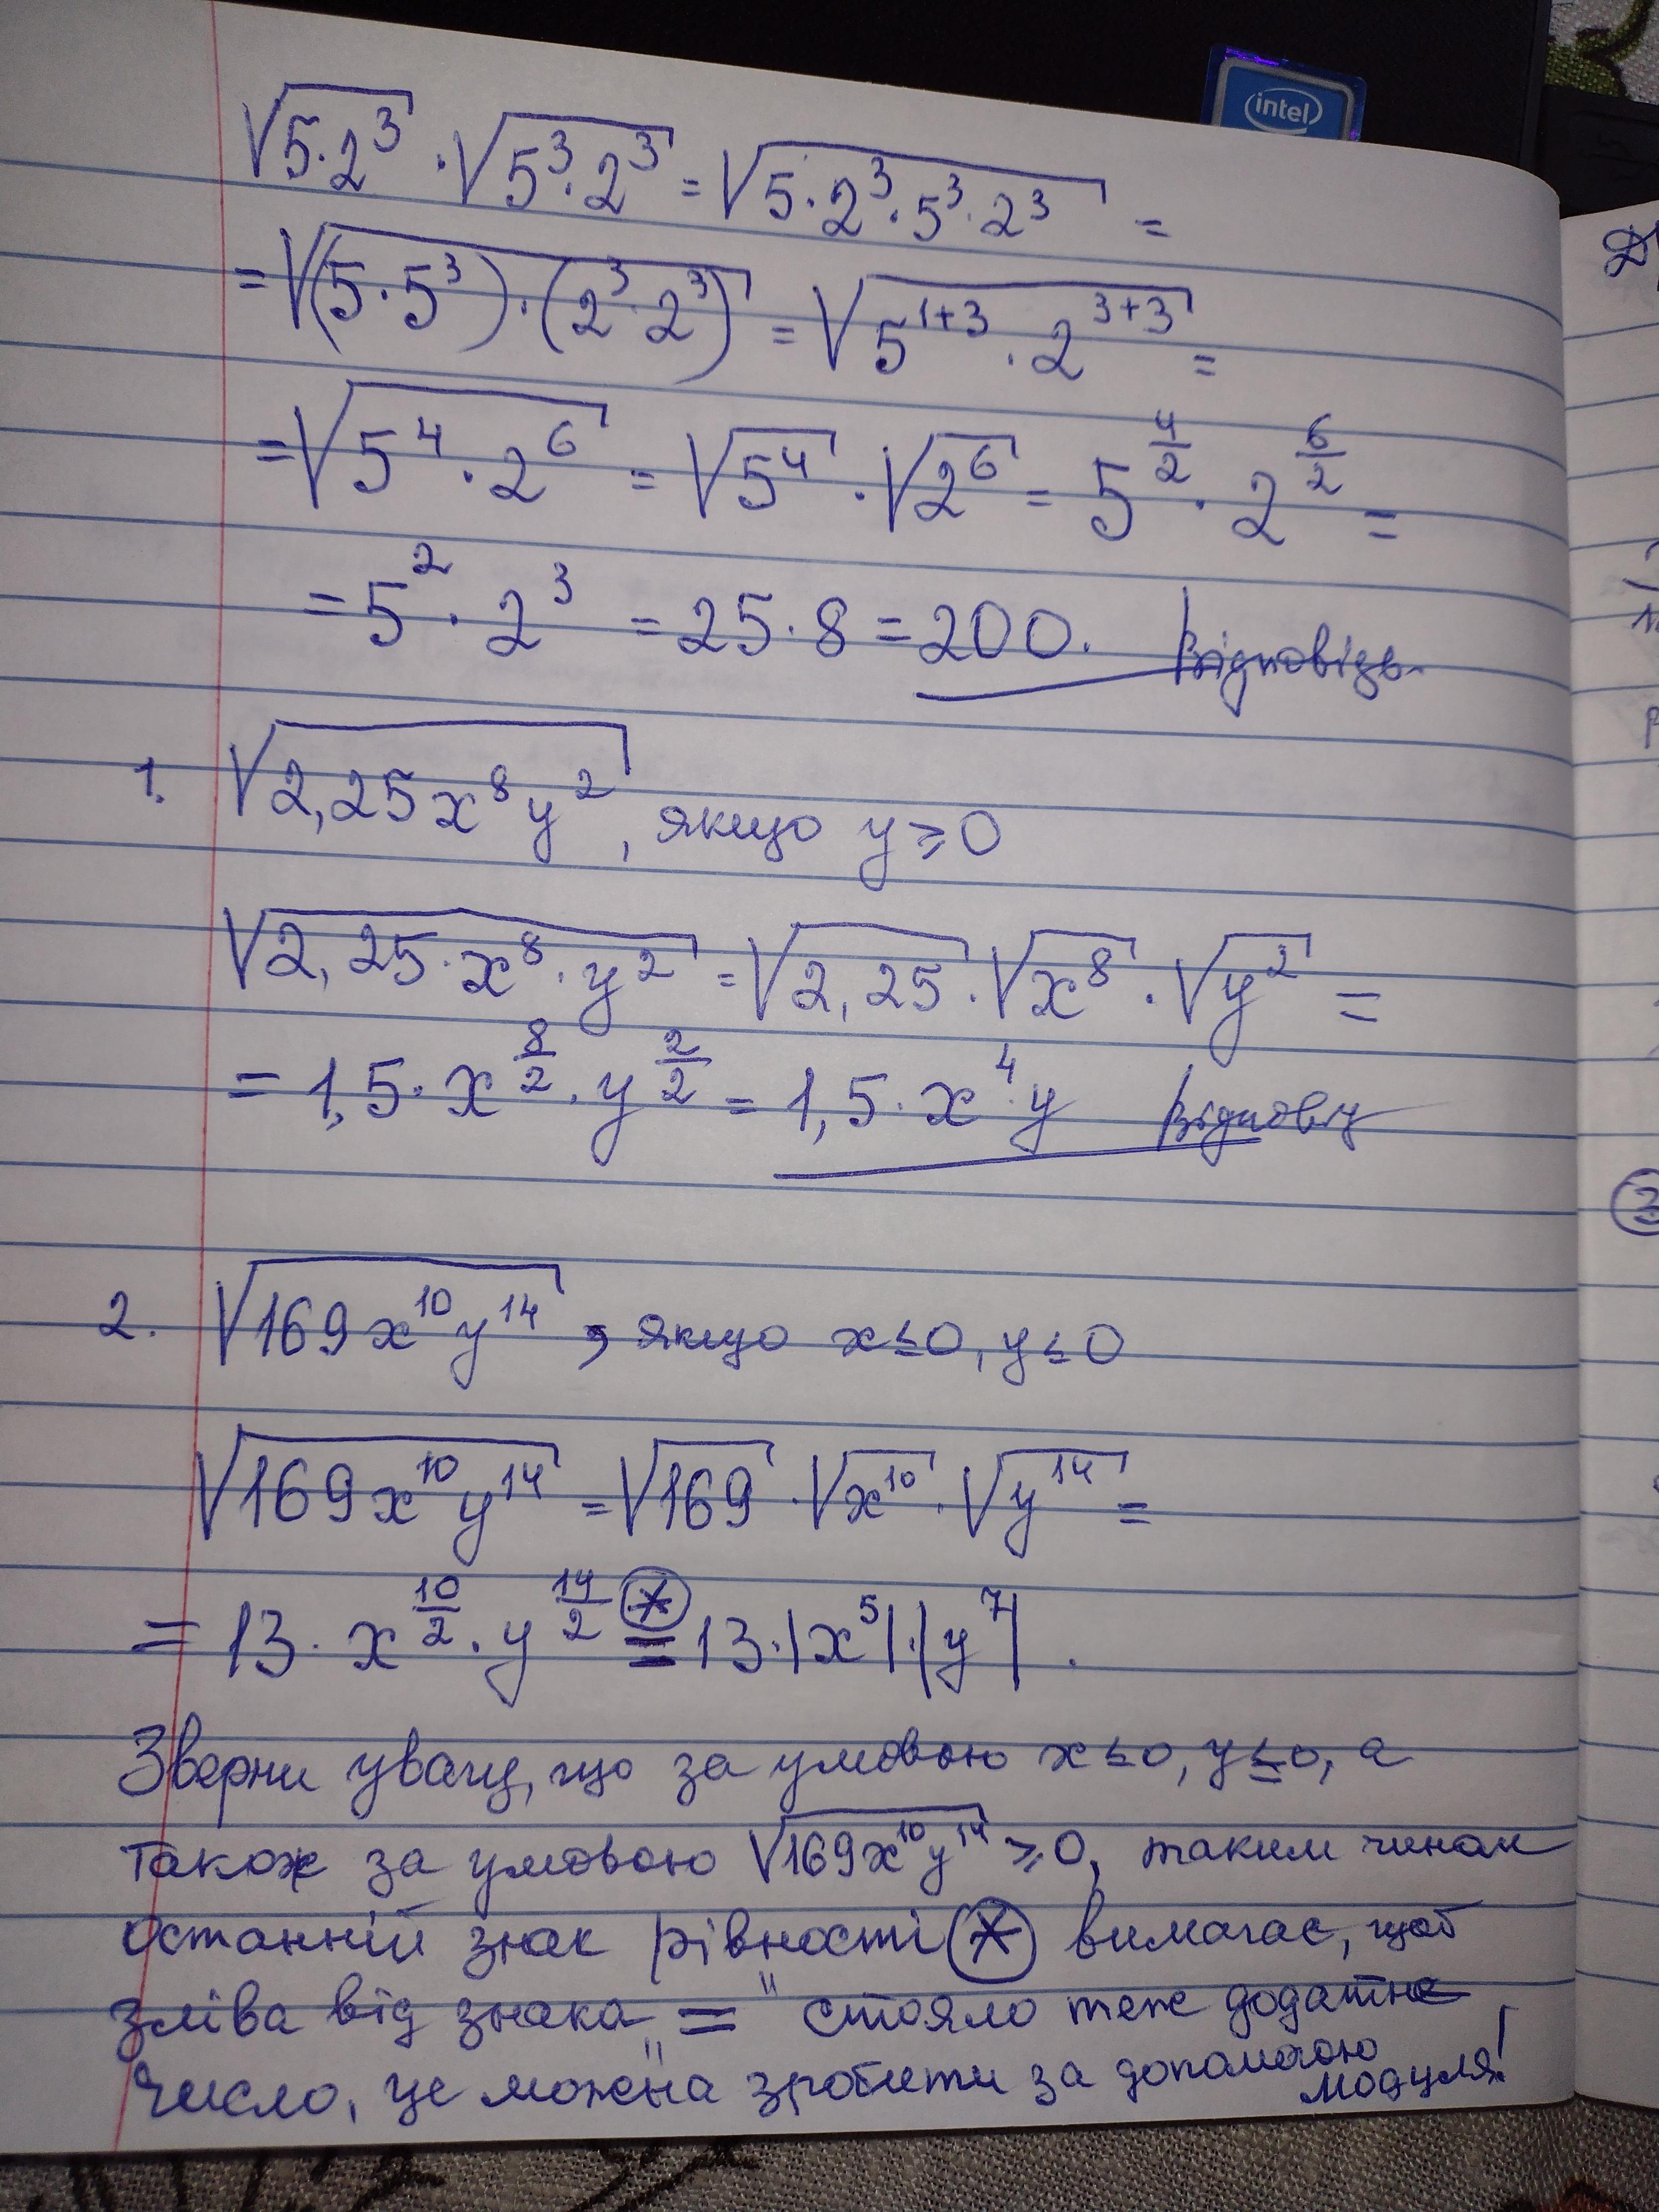 intel
√(5·2³) · √(5³·2³) = √(5·2³·5³·2³) =
= √((5·5³)·(2³·2³)) = √(5¹⁺³ · 2³⁺³) =
= √(5⁴·2⁶) = √(5⁴) · √(2⁶) = 5^(4/2) · 2^(6/2) =
= 5² · 2³ = 25·8 = 200. Відповідь
1. √(2,25x⁸y²), якщо y ≥ 0
√(2,25·x⁸·y²) = √(2,25) · √(x⁸) · √(y²) =
= 1,5·x^(8/2)·y^(2/2) = 1,5·x⁴·y
2. √(169x¹⁰y¹⁴), якщо x ≤ 0, y ≤ 0
√(169x¹⁰y¹⁴) = √169 · √(x¹⁰) · √(y¹⁴) =
= 13·x^(10/2)·y^(14/2) =(*) 13·|x⁵|·|y⁷|.
Зверни увагу, що за умовою x ≤ 0, y ≤ 0, а
також за умовою √(169x¹⁰y¹⁴) ≥ 0, таким чином
останній знак рівності (*) вимагає, щоб
зліва від знака „=" стояло теж додатне
число, це можна зробити за допомогою
модуля!
3